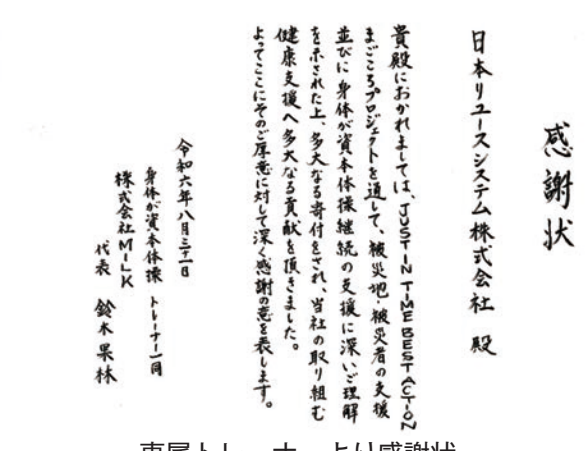 感謝状
日本リユースシステム株式会社 殿
貴殿におかれましては、JUST IN TIME BEST ACTION
まごころプロジェクトを通して、被災地・被災者の支援
並びに身体が資本体操継続の支援に深いご理解
を示された上、多大なる寄付をされ、当社の取り組む
健康支援へ多大なる貢献を頂きました。
よってここにそのご厚意に対して深く感謝の意を表します。
令和六年八月三十一日
身体が資本体操 トレーナー一同
株式会社MILK
代表 鈴木果林
専属トレーナーより感謝状